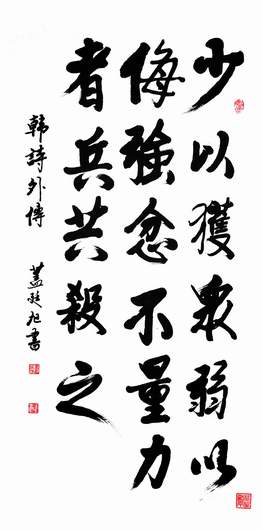 少以獲眾弱以
侮強忿不量力
者兵共殺之
韓詩外傳 蓋廷旭書